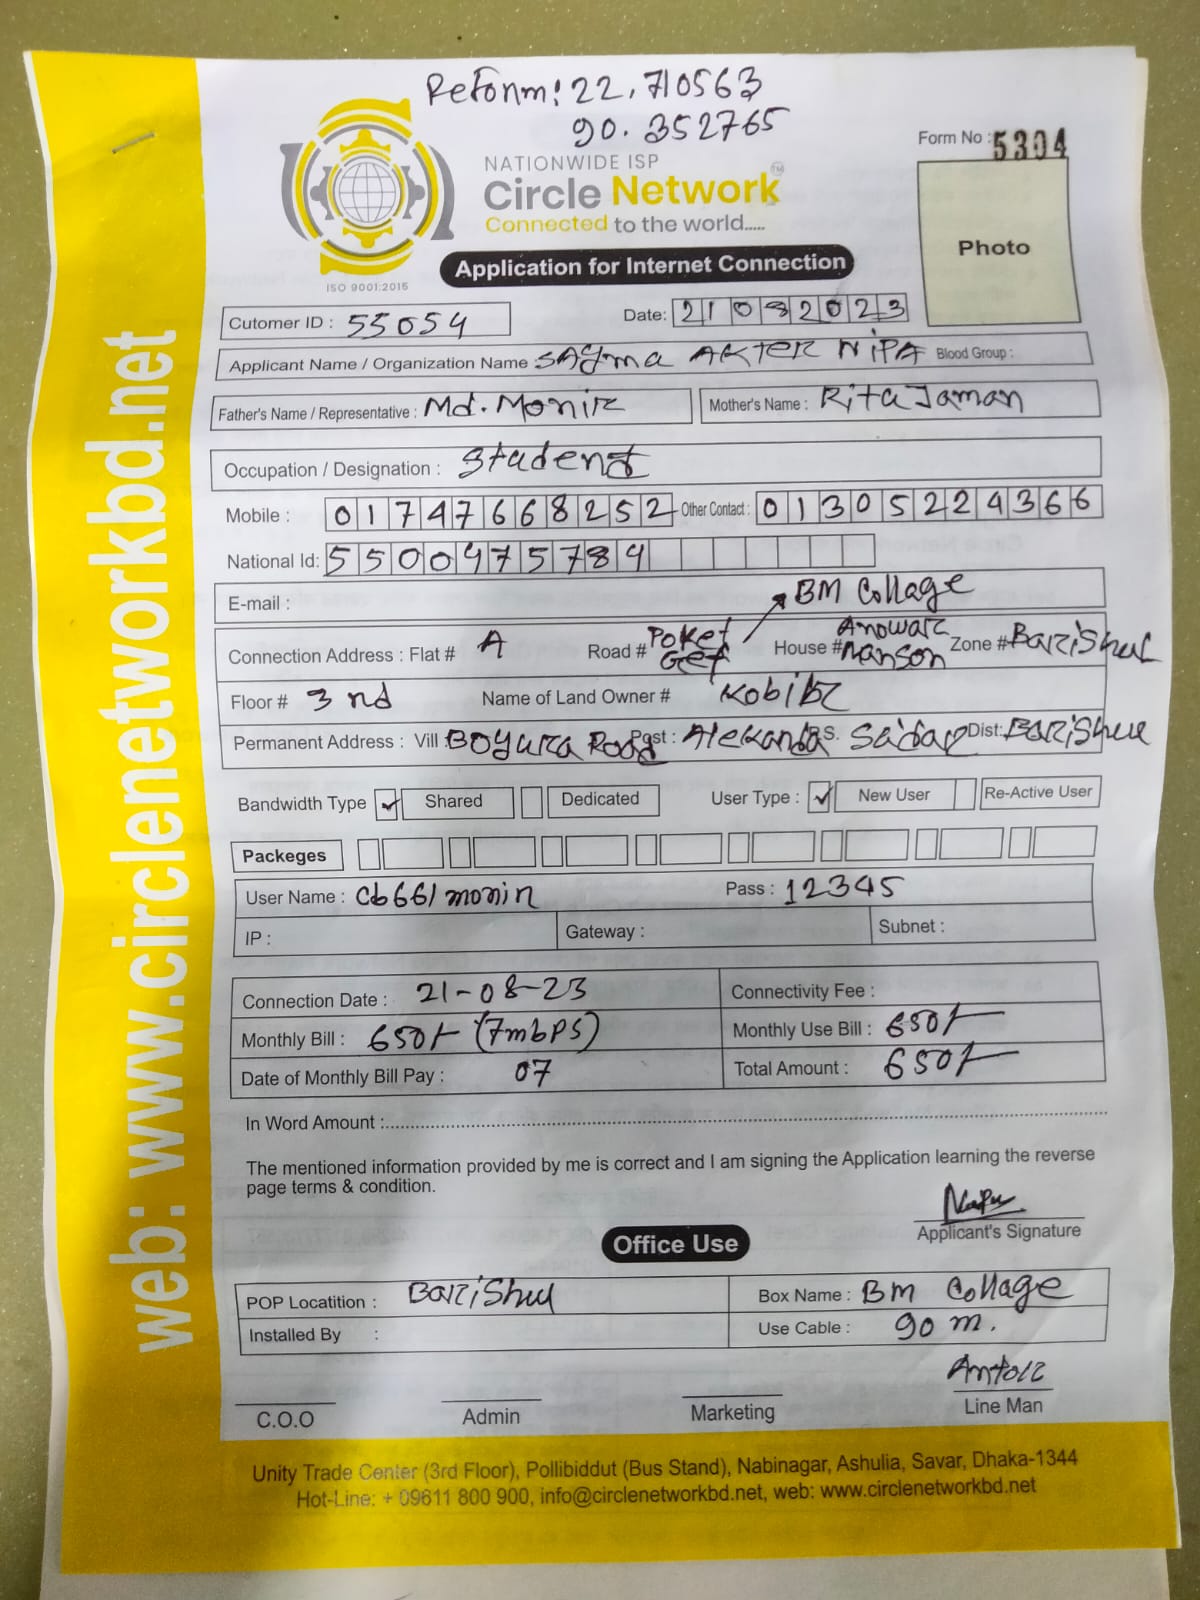 Reform: 22.710563
90.352765
Form No : 5304
NATIONWIDE ISP
Circle Network TM
Connected to the world.....
ISO 9001:2015
Photo
Application for Internet Connection
Cutomer ID : 55054
Date: 21082023
Applicant Name / Organization Name : SAyma AKTER NiPA Blood Group :
Father's Name / Representative : Md. Monir
Mother's Name : Rita Jaman
Occupation / Designation : Student
Mobile : 01747668252 Other Contact : 01305224366
National Id: 5500475784
E-mail :
BM Collage
Connection Address : Flat # A Road # Poket Get House # Anowar Manson Zone # Barishul
Floor # 3 nd Name of Land Owner # Kobir
Permanent Address : Vill : BOgura Road Post : Alekanda P.S. Sadar Dist: Barishul
Bandwidth Type ✓ Shared Dedicated User Type : ✓ New User Re-Active User
Packeges
User Name : cb661monir Pass : 12345
IP : Gateway : Subnet :
Connection Date : 21-08-23 Connectivity Fee :
Monthly Bill : 650/- (7mbps) Monthly Use Bill : 650/-
Date of Monthly Bill Pay : 07 Total Amount : 650/-
In Word Amount :
The mentioned information provided by me is correct and I am signing the Application learning the reverse
page terms & condition.
Applicant's Signature
Office Use
POP Locatition : Barishul Box Name : BM Collage
Installed By : Use Cable : 90 m.
C.O.O Admin Marketing Line Man
web: www.circlenetworkbd.net
Unity Trade Center (3rd Floor), Pollibiddut (Bus Stand), Nabinagar, Ashulia, Savar, Dhaka-1344
Hot-Line: + 09611 800 900, info@circlenetworkbd.net, web: www.circlenetworkbd.net